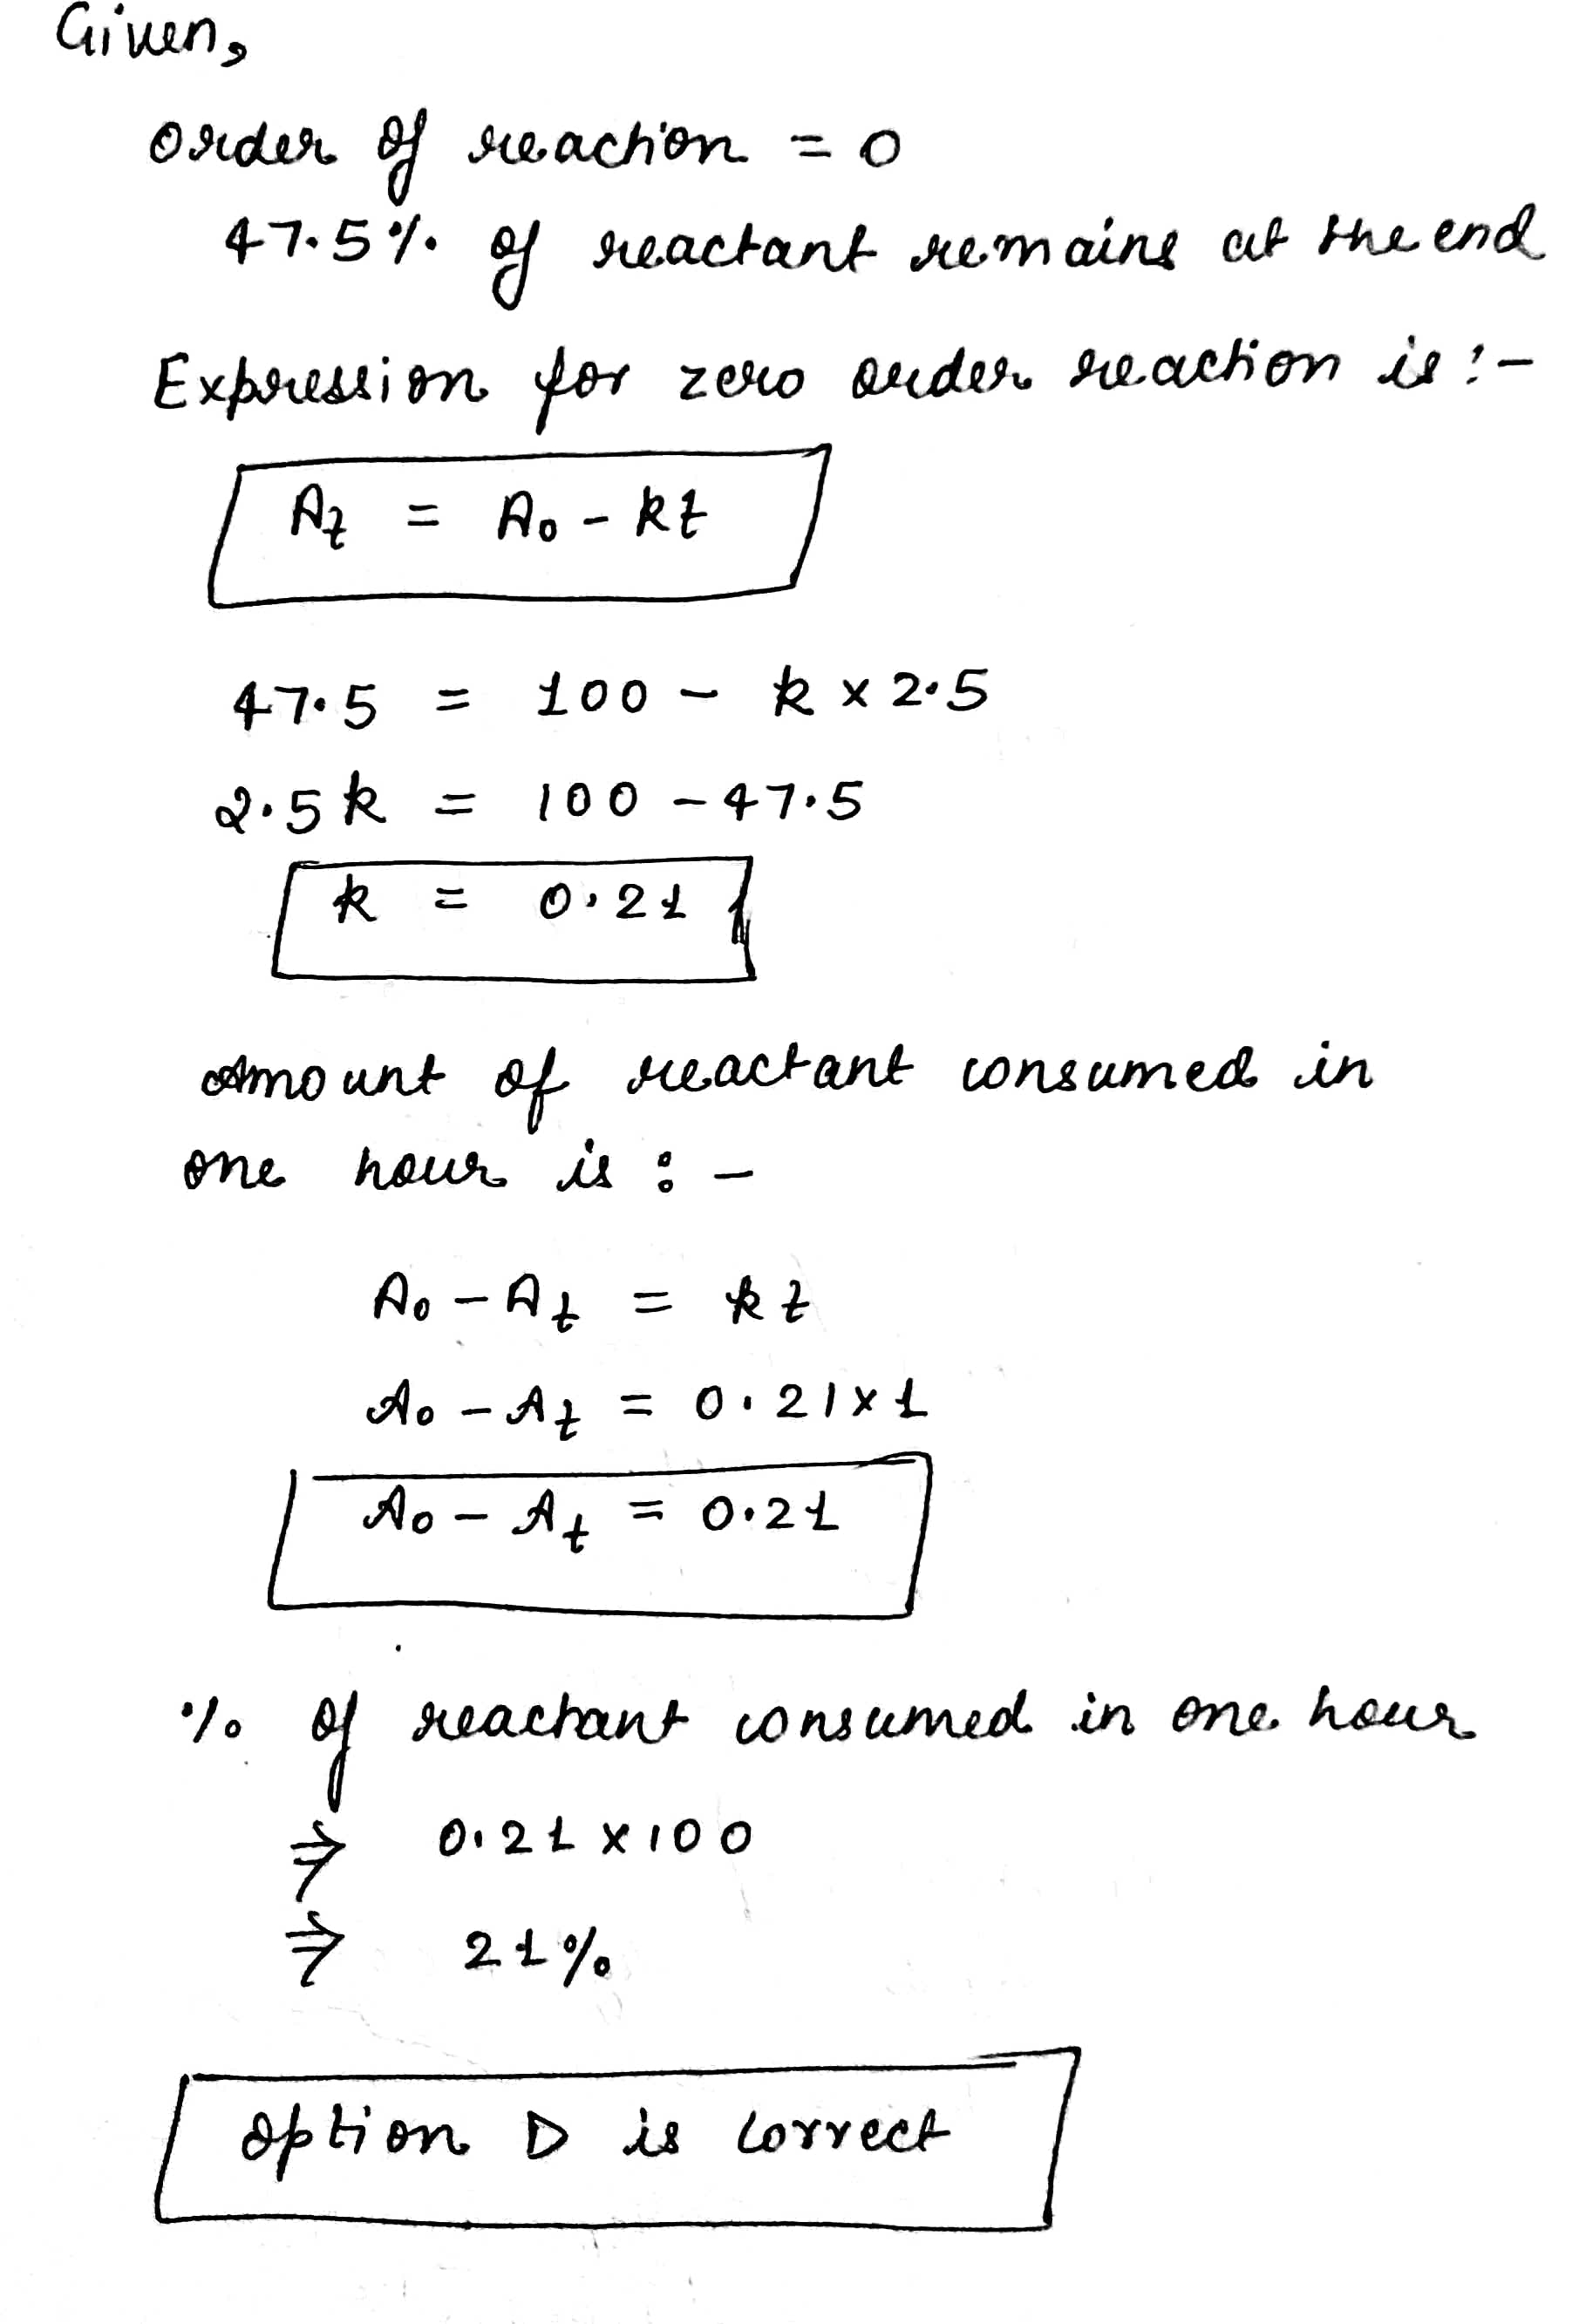 Given,
Order of reaction = 0
47.5% of reactant remains at the end
Expression for zero order reaction is :-
At = A0 - kt
47.5 = 100 - k × 2.5
2.5k = 100 - 47.5
k = 0.21
Amount of reactant consumed in
one hour is : -
A0 - At = kt
A0 - At = 0.21×1
A0 - At = 0.21
% of reactant consumed in one hour
⇒ 0.21 ×100
⇒ 21%
option D is correct